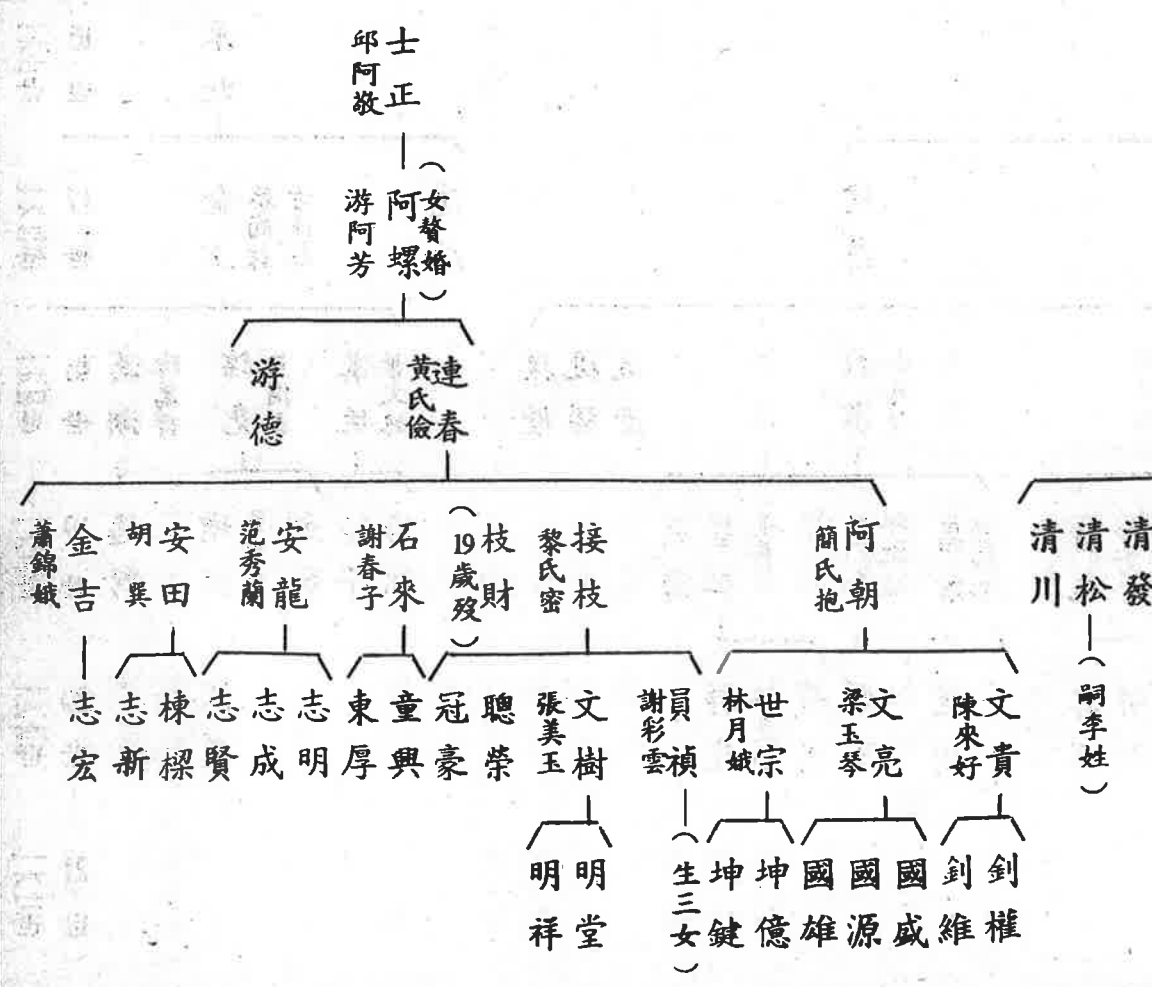 士正
邱阿敬
(女贅婚)
阿螺
游阿芳
連春
黃氏儉
游德
清發
清松
清川
阿朝
簡氏抱
接枝
黎氏密
枝財
(19歲歿)
石來
謝春子
安龍
范秀蘭
安田
胡巽
金吉
蕭錦娥
(嗣李姓)
文貴
陳來好
文亮
梁玉琴
世宗
林月娥
員禎
謝彩雲
文樹
張美玉
聰榮
冠豪
童興
東厚
志明
志成
志賢
棟樑
志新
志宏
釗權
釗維
國盛
國源
國雄
坤億
坤鍵
(生三女)
明堂
明祥